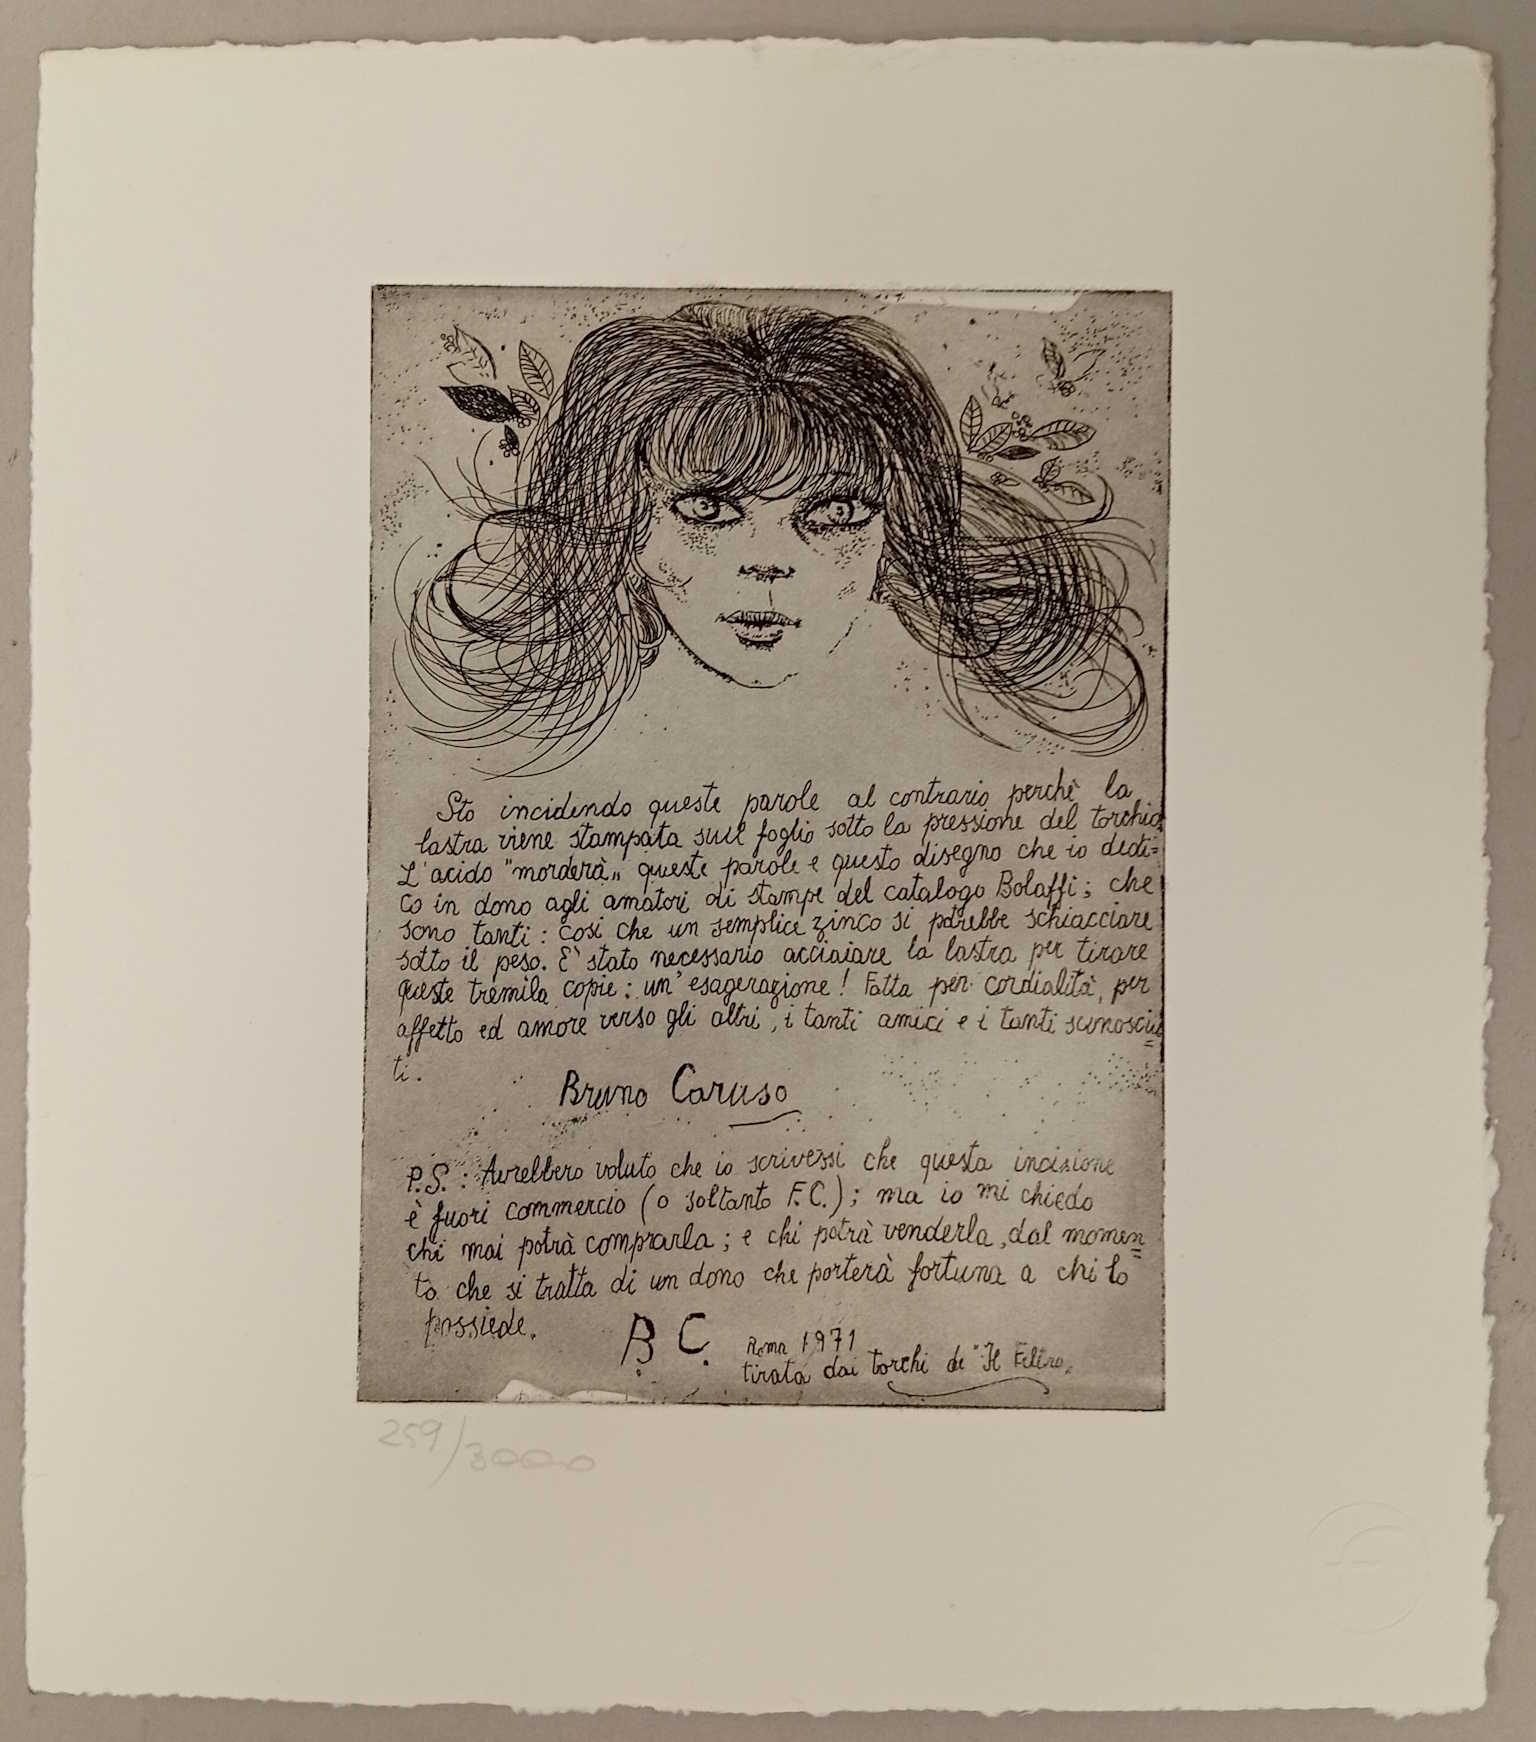 Sto incidendo queste parole al contrario perchè la
lastra viene stampata sul foglio sotto la pressione del torchio.
L'acido "morderà„ queste parole e questo disegno che io dedi=
co in dono agli amatori di stampe del catalogo Bolaffi; che
sono tanti: così che un semplice zinco si potrebbe schiacciare
sotto il peso. E' stato necessario acciaiare la lastra per tirare
queste tremila copie: un'esagerazione! Fatta per cordialità, per
affetto ed amore verso gli altri, i tanti amici e i tanti sconosciu=
ti.
Bruno Caruso
P.S.: Avrebbero voluto che io scrivessi che questa incisione
è fuori commercio (o soltanto F.C.); ma io mi chiedo
chi mai potrà comprarla; e chi potrà venderla, dal momen=
to che si tratta di un dono che porterà fortuna a chi lo
possiede.
B. C.
Roma 1971
tirata dai torchi de "Il Feltro„
259/3000